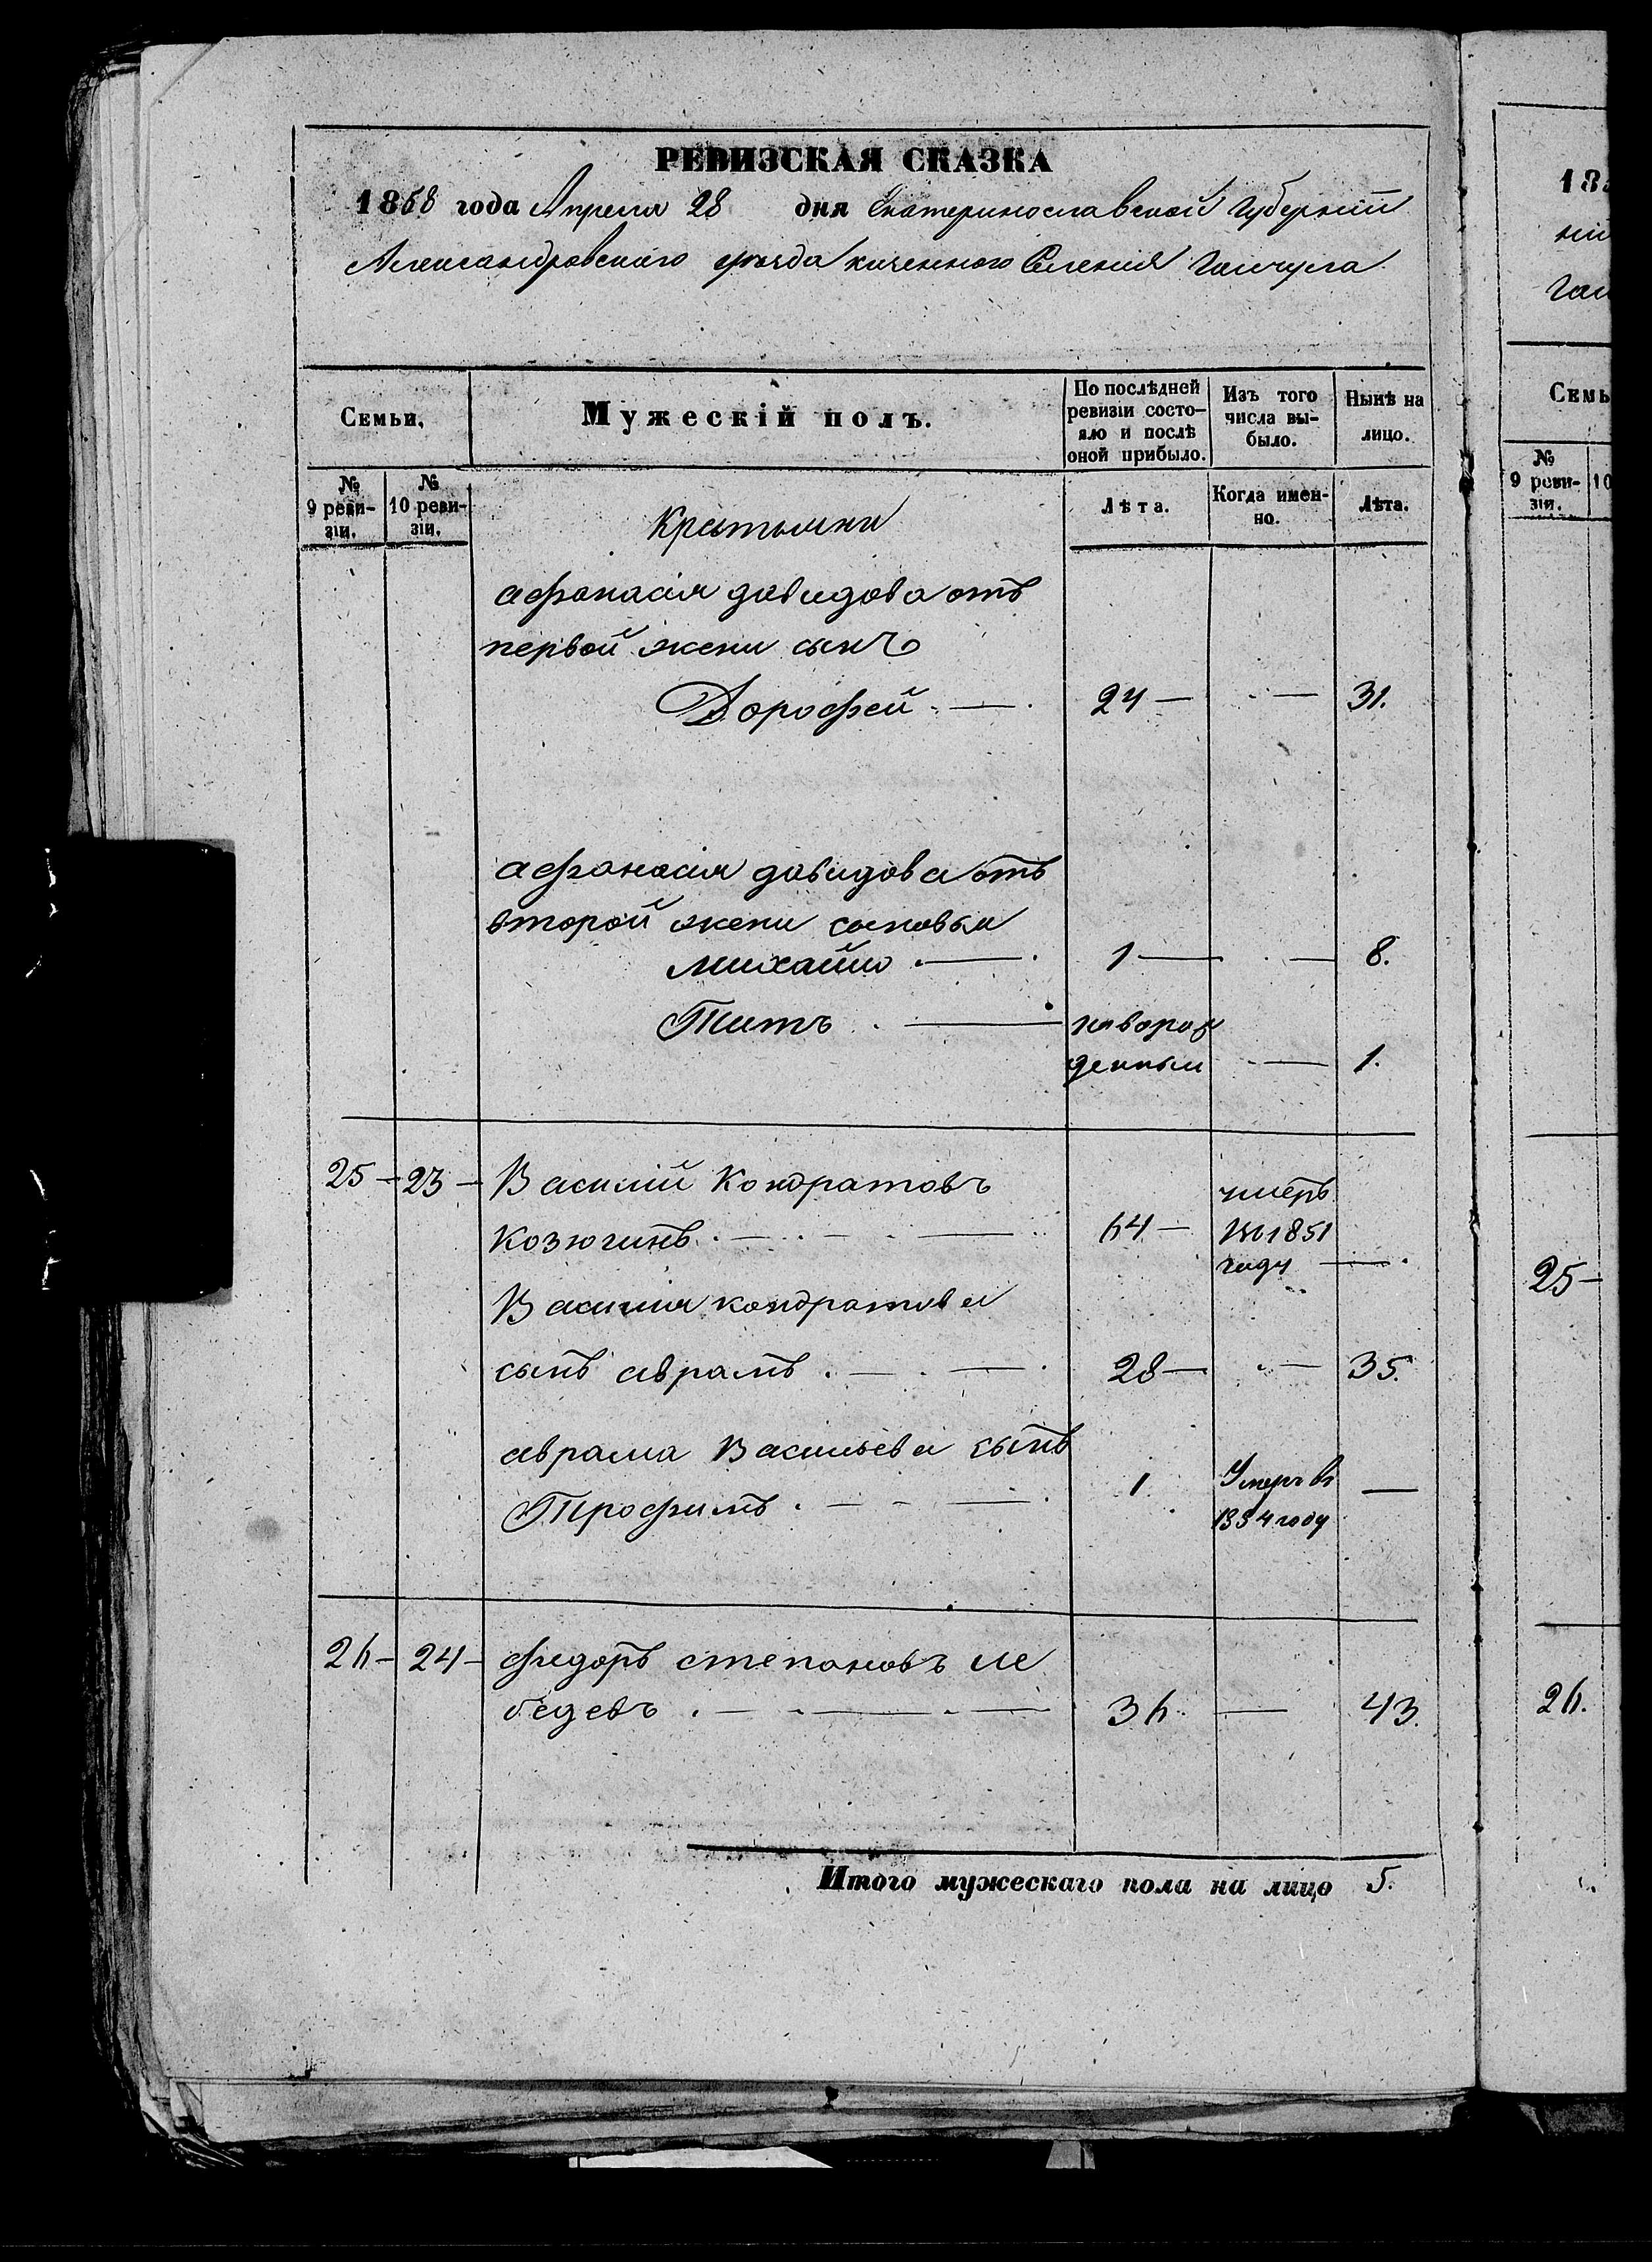 РЕВИЗСКАЯ СКАЗКА
1858 года Апреля 28 дня Екатеринославской Губерніи
Александровскаго уѣзда казенного Селенія Гайчула
Семьи.
Мужескій полъ.
По послѣдней ревизіи состо-
яло и послѣ оной прибыло.
Изъ того числа вы-
было.
Нынѣ на лицо.
№ 9 реви-
зіи.
№ 10 реви-
зіи.
Крестьяни
Лѣта.
Когда имен-
но.
Лѣта.
афанасія давидова отъ
первой жени сынъ
Дорофей 24 — — 31.
афанасія давидова отъ
второй жени сыновья
михайло 1 — — 8.
Титъ новорож
денный — 1.
25 — 23 — Василій Кондратовъ
умеръ
Козюгинъ 64 — во 1851
году —
Василия кондратова
сынъ аврамъ 28 — — 35.
аврама Васильева сынъ
Трофимъ 1 Умеръ въ —
1854 году
26 — 24 — федоръ степановъ ле
бедевъ 36. — 43.
Итого мужескаго пола на лицо 5.
18
ни
Гай
Семь
№
9 реви-
зіи.
10
25 —
26.